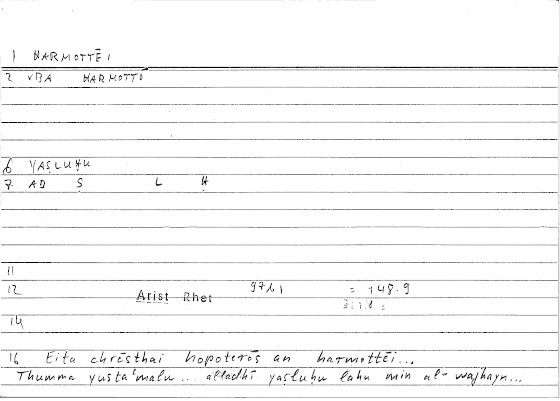 1 HARMOTTĒI
2 VBA HARMOTTŌ
6 YAṢLUḤU
7 AD Ṣ L Ḥ
11
12 Arist Rhet 97b1 = 148.9
14
16 Eita chrēsthai hopoterōs an harmottēi...
Thumma yusta'malu ... alladhī yaṣluḥu lahu min al-wajhayn...